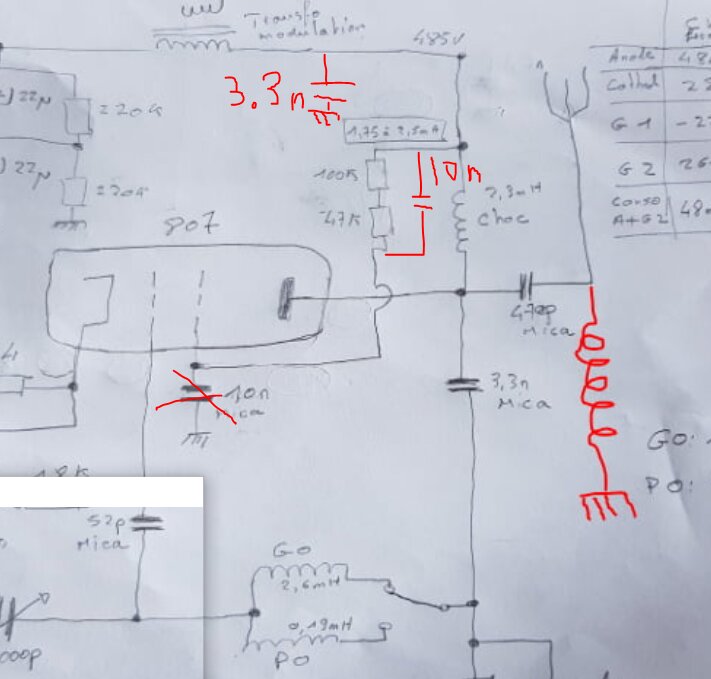 Transfo
modulation
485V
3.3n
22µ
220K
1,75 à 2,5mA
100K
10n
22µ
220K
47K
2,3mH
choc
Anode
Cathod
G 1
G 2
Conso
A+G2
807
470p
Mica
10n
Mica
3,3n
Mica
GO:
PO:
18K
52p
Mica
GO
2,6mH
0,19mH
PO
000p